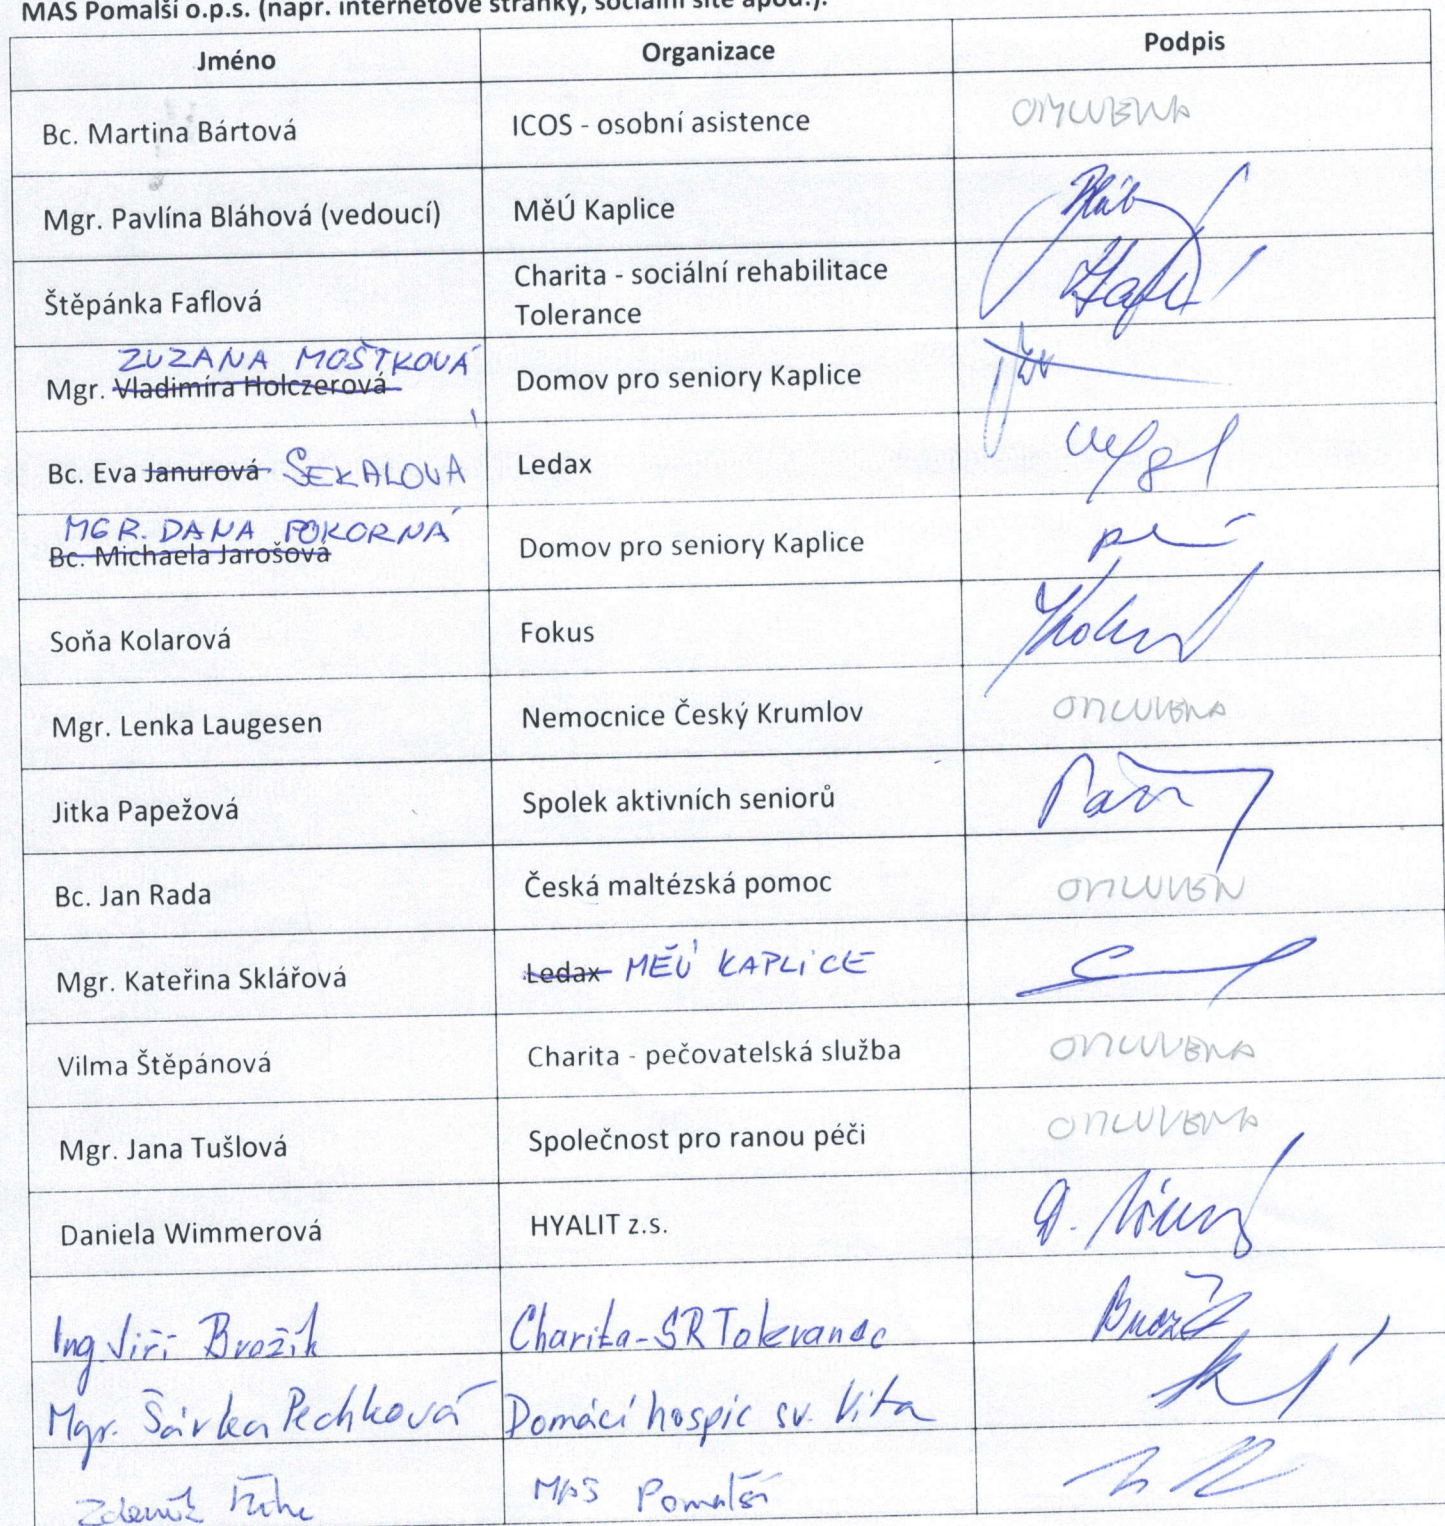 MAS Pomalší o.p.s. (např. internetové stránky, sociální sítě apod.).
Jméno Organizace Podpis
Bc. Martina Bártová ICOS - osobní asistence OMLUVENA
Mgr. Pavlína Bláhová (vedoucí) MěÚ Kaplice
Štěpánka Faflová Charita - sociální rehabilitace
Tolerance
ZUZANA MOŠTKOVÁ
Mgr. Vladimíra Holczerová Domov pro seniory Kaplice
Bc. Eva Janurová SEKALOVÁ Ledax
MGR. DANA POKORNÁ
Bc. Michaela Jarošová Domov pro seniory Kaplice
Soňa Kolarová Fokus
Mgr. Lenka Laugesen Nemocnice Český Krumlov OMLUVENA
Jitka Papežová Spolek aktivních seniorů
Bc. Jan Rada Česká maltézská pomoc OMLUVEN
Mgr. Kateřina Sklářová Ledax MĚÚ KAPLICE
Vilma Štěpánová Charita - pečovatelská služba OMLUVENA
Mgr. Jana Tušlová Společnost pro ranou péči OMLUVENA
Daniela Wimmerová HYALIT z.s.
Ing. Jiří Brožík Charita-SR Tolerance Brožík
Mgr. Šárka Pechková Domácí hospic sv. Víta
Zdeněk MAS Pomalší